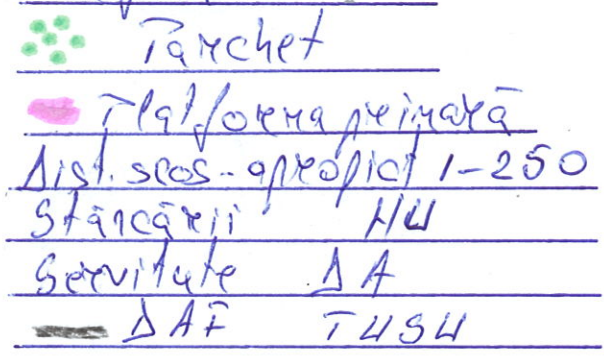 Parchet
Platforma primară
Dist. scos-apropiat 1-250
Stâncării NU
Servitute DA
DAF TUSU